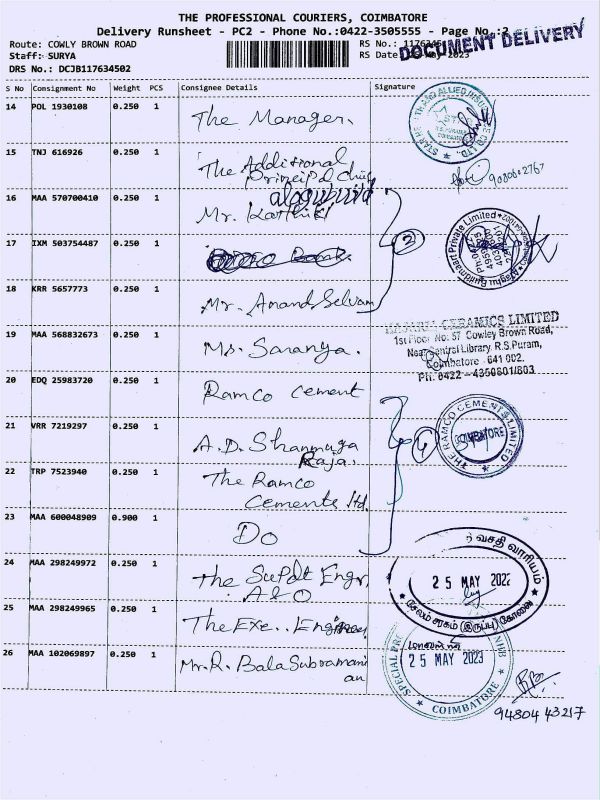 THE PROFESSIONAL COURIERS, COIMBATORE
Delivery Runsheet - PC2 - Phone No.:0422-3505555 - Page No.:2
DOCUMENT DELIVERY
Route: COWLY BROWN ROAD
Staff: SURYA
DRS No.: DCJB117634502
RS No.:
RS Date
May 2023
S No Consignment No Weight PCS Consignee Details Signature
14 POL 1930108 0.250 1 The Manager.
15 TNJ 616926 0.250 1 The Additional
Principal Chief
9080802767
16 MAA 570700410 0.250 1 alagubuild
Mr. Karthik
17 IXM 503754487 0.250 1
Alaghu Buildmaart Private Limited
18 KRR 5657773 0.250 1 Mr. Anand Selvam
3
19 MAA 568832673 0.250 1 Ms. Saranya.
CERAMICS LIMITED
1st Floor No. 57 Cowley Brown Road,
Near Central Library, R.S.Puram,
Coimbatore - 641 002.
Ph: 0422 - 4350801/803
20 EDQ 25983720 0.250 1 Ramco Cement
21 VRR 7219297 0.250 1 A.D. Shanmuga
Raja.
4
THE RAMCO CEMENTS LIMITED
COIMBATORE
22 TRP 7523940 0.250 1 The Ramco
Cements ltd.
23 MAA 600048909 0.900 1 Do
24 MAA 298249972 0.250 1 The Supdt Engr
A & O
வசதி வாரியம்
25 MAY 202
சேலம் சரகம் (இருப்பு) கோவை
25 MAA 298249965 0.250 1 The Exe. Engineer
26 MAA 102069897 0.250 1 Mr. R. Bala Subramani
an
25 MAY 2023
SPECIAL
COIMBATORE
94804 43217